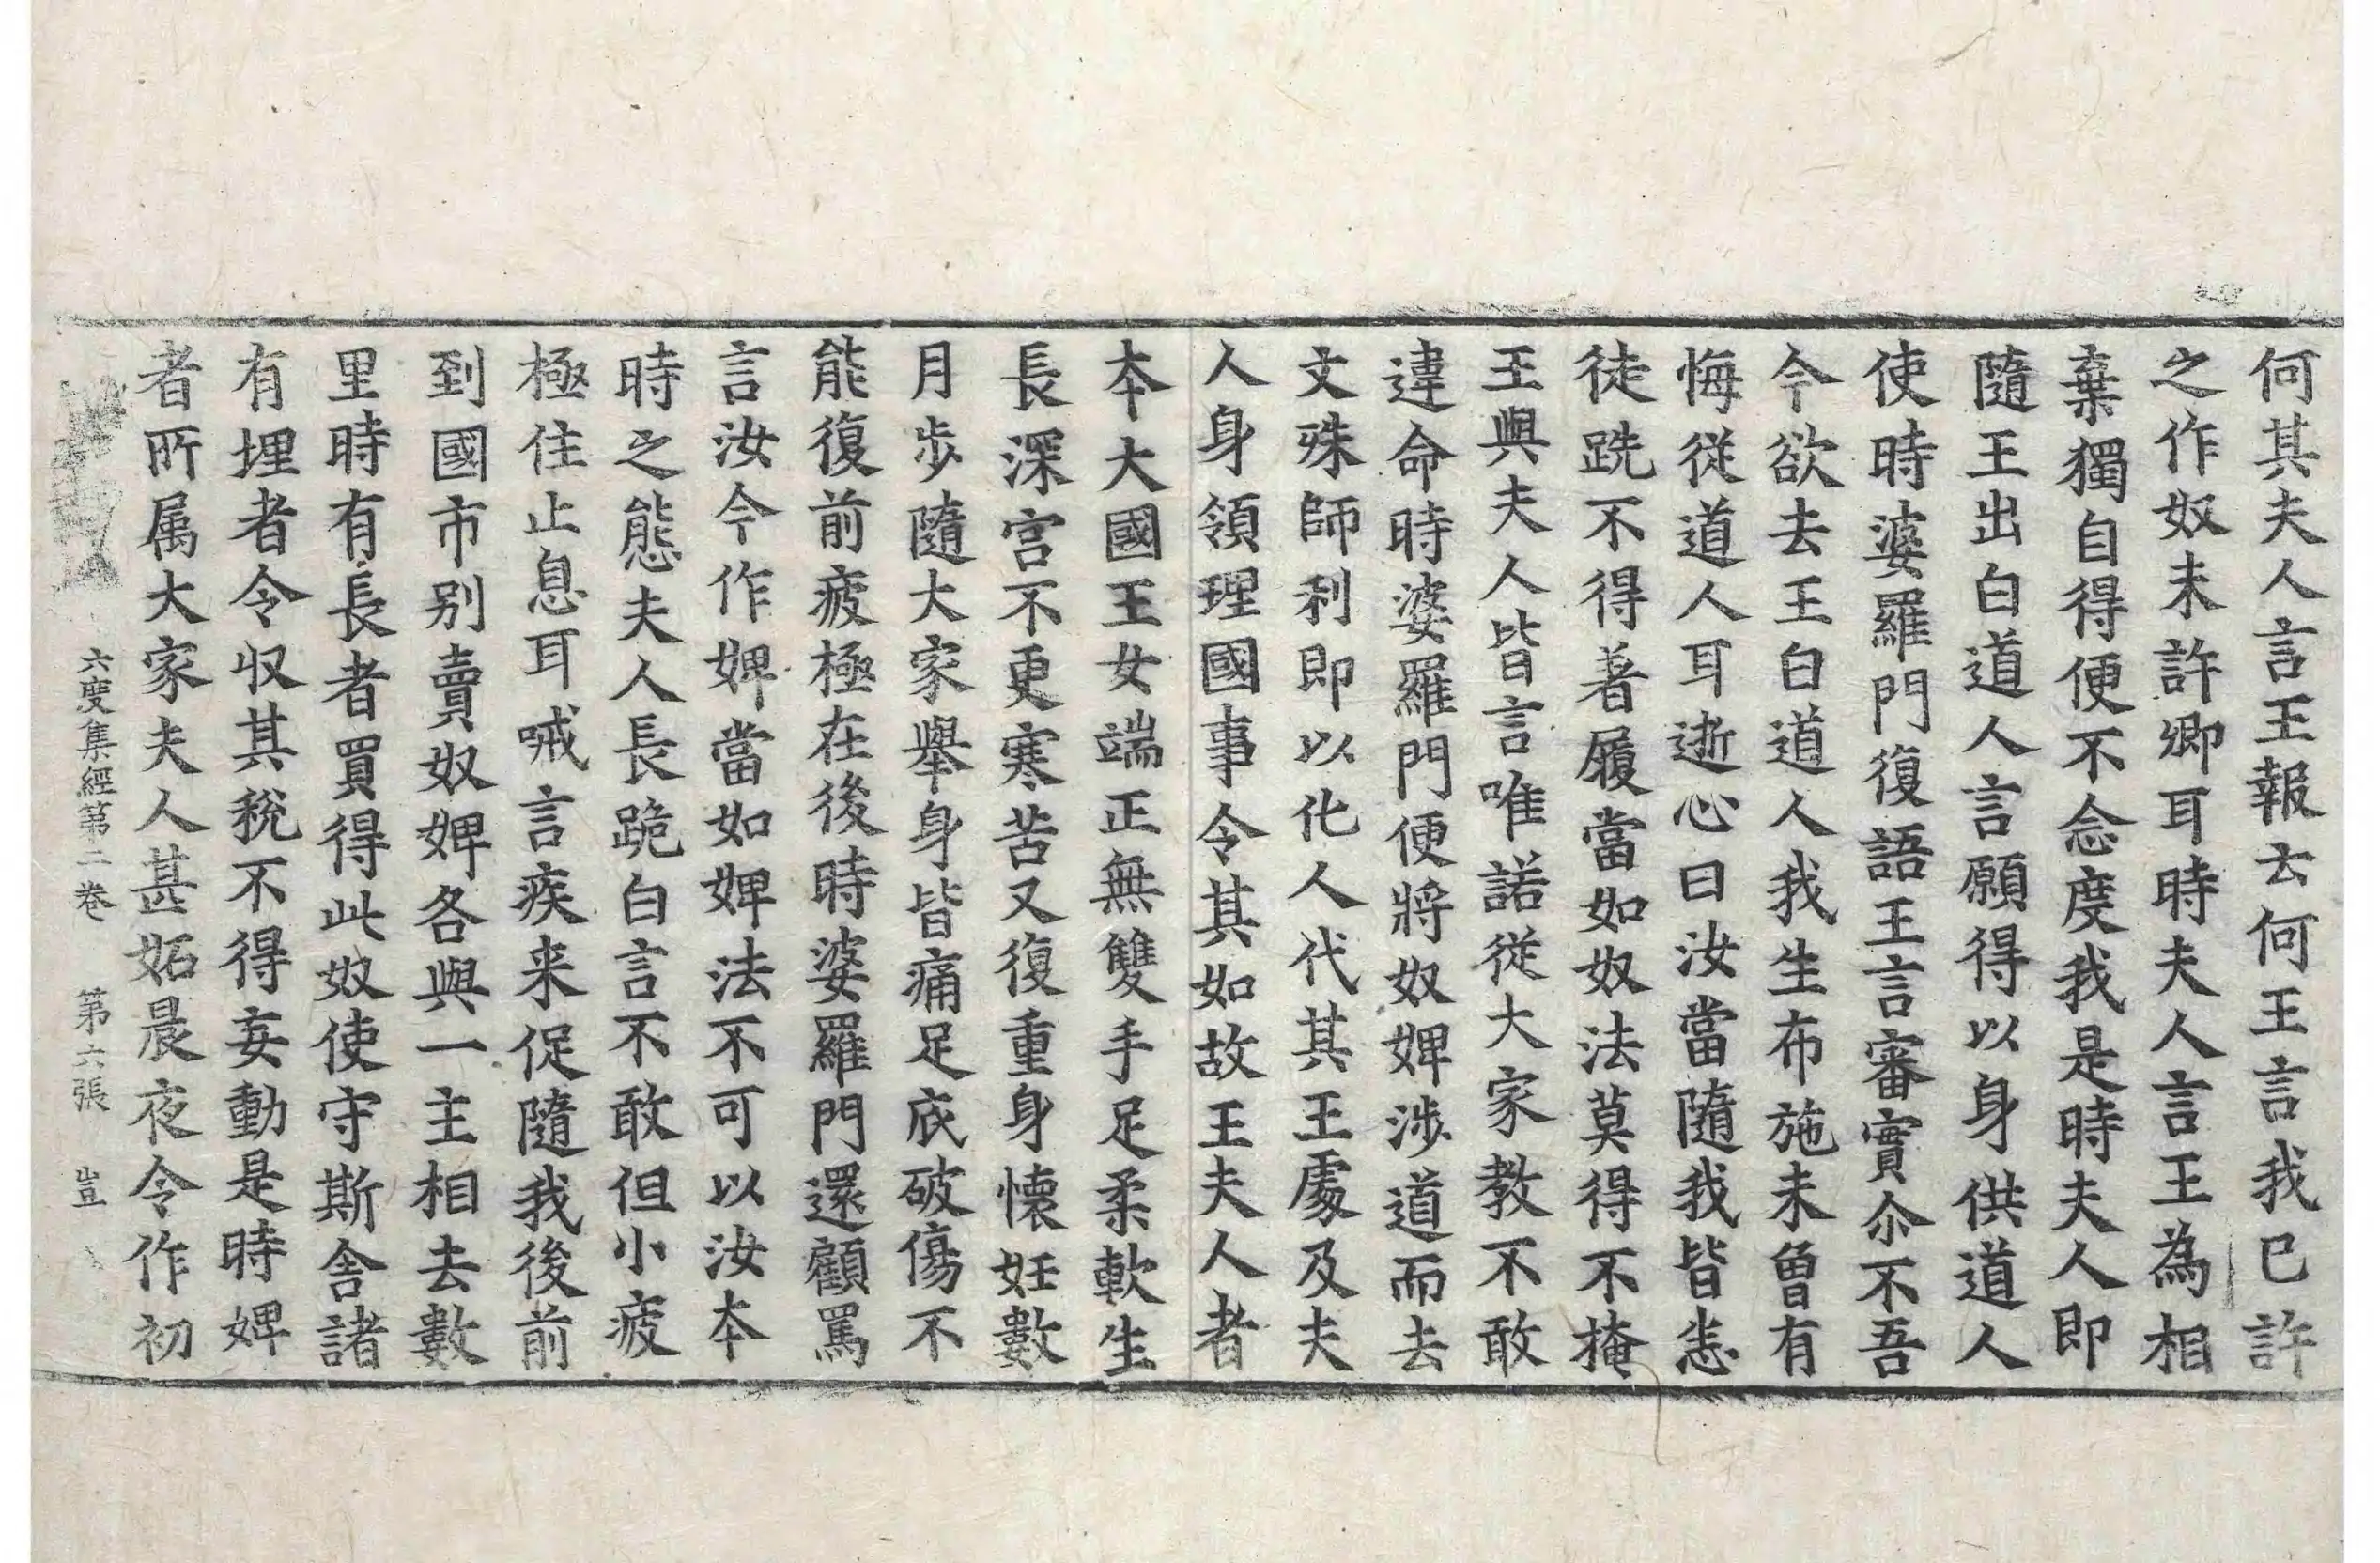 何其夫人言王報去何王言我已許
之作奴未許卿耳時夫人言王為相
棄獨自得便不念度我是時夫人即
隨王出白道人言願得以身供道人
使時婆羅門復語王言審實尒不吾
今欲去王白道人我生布施未曾有
悔從道人耳逝心曰汝當隨我皆恙
徒跣不得著履當如奴法莫得不掩
王與夫人皆言唯諾從大家教不敢
違命時婆羅門便將奴婢涉道而去
文殊師利即以化人代其王處及夫
人身領理國事令其如故王夫人者
本大國王女端正無雙手足柔軟生
長深宮不更寒苦又復重身懷妊數
月步隨大家舉身皆痛足底破傷不
能復前疲極在後時婆羅門還顧罵
言汝今作婢當如婢法不可以汝本
時之態夫人長跪白言不敢但小疲
極住止息耳喊言疾来促隨我後前
到國市別賣奴婢各與一主相去數
里時有長者買得此奴使守斯舍諸
有埋者令収其稅不得妄動是時婢
者所属大家夫人甚妬晨夜令作初
六度集經第二卷　第六張　豈